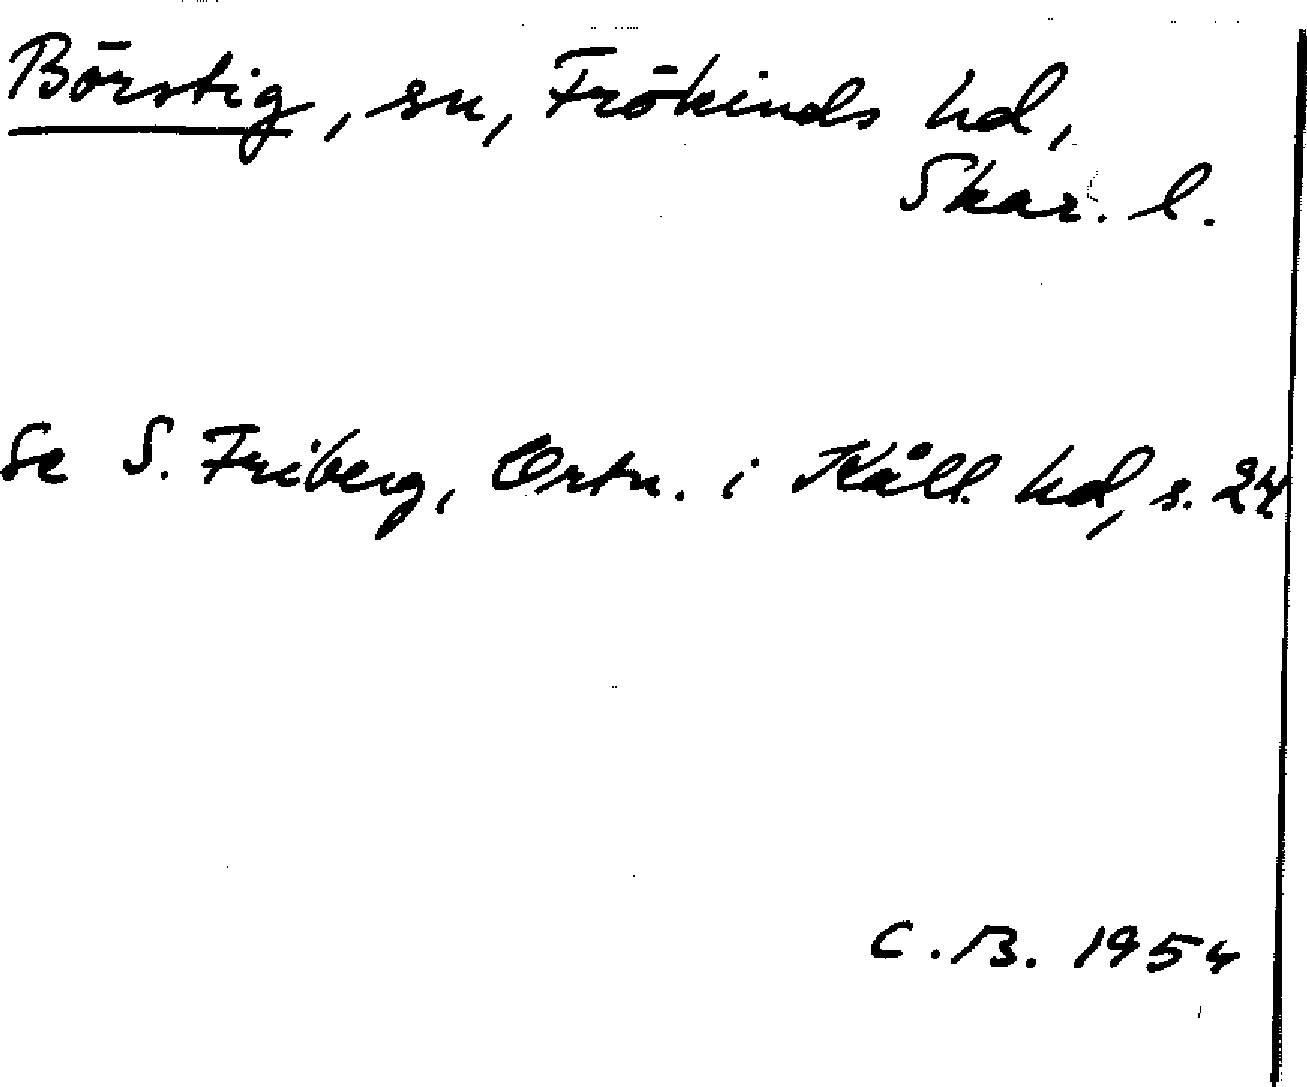 Börstig, sn, Frökinds hd,
Skar. l.
Se S. Friberg, Ortn. i Kåll. hd, s. 24
C.B. 1954